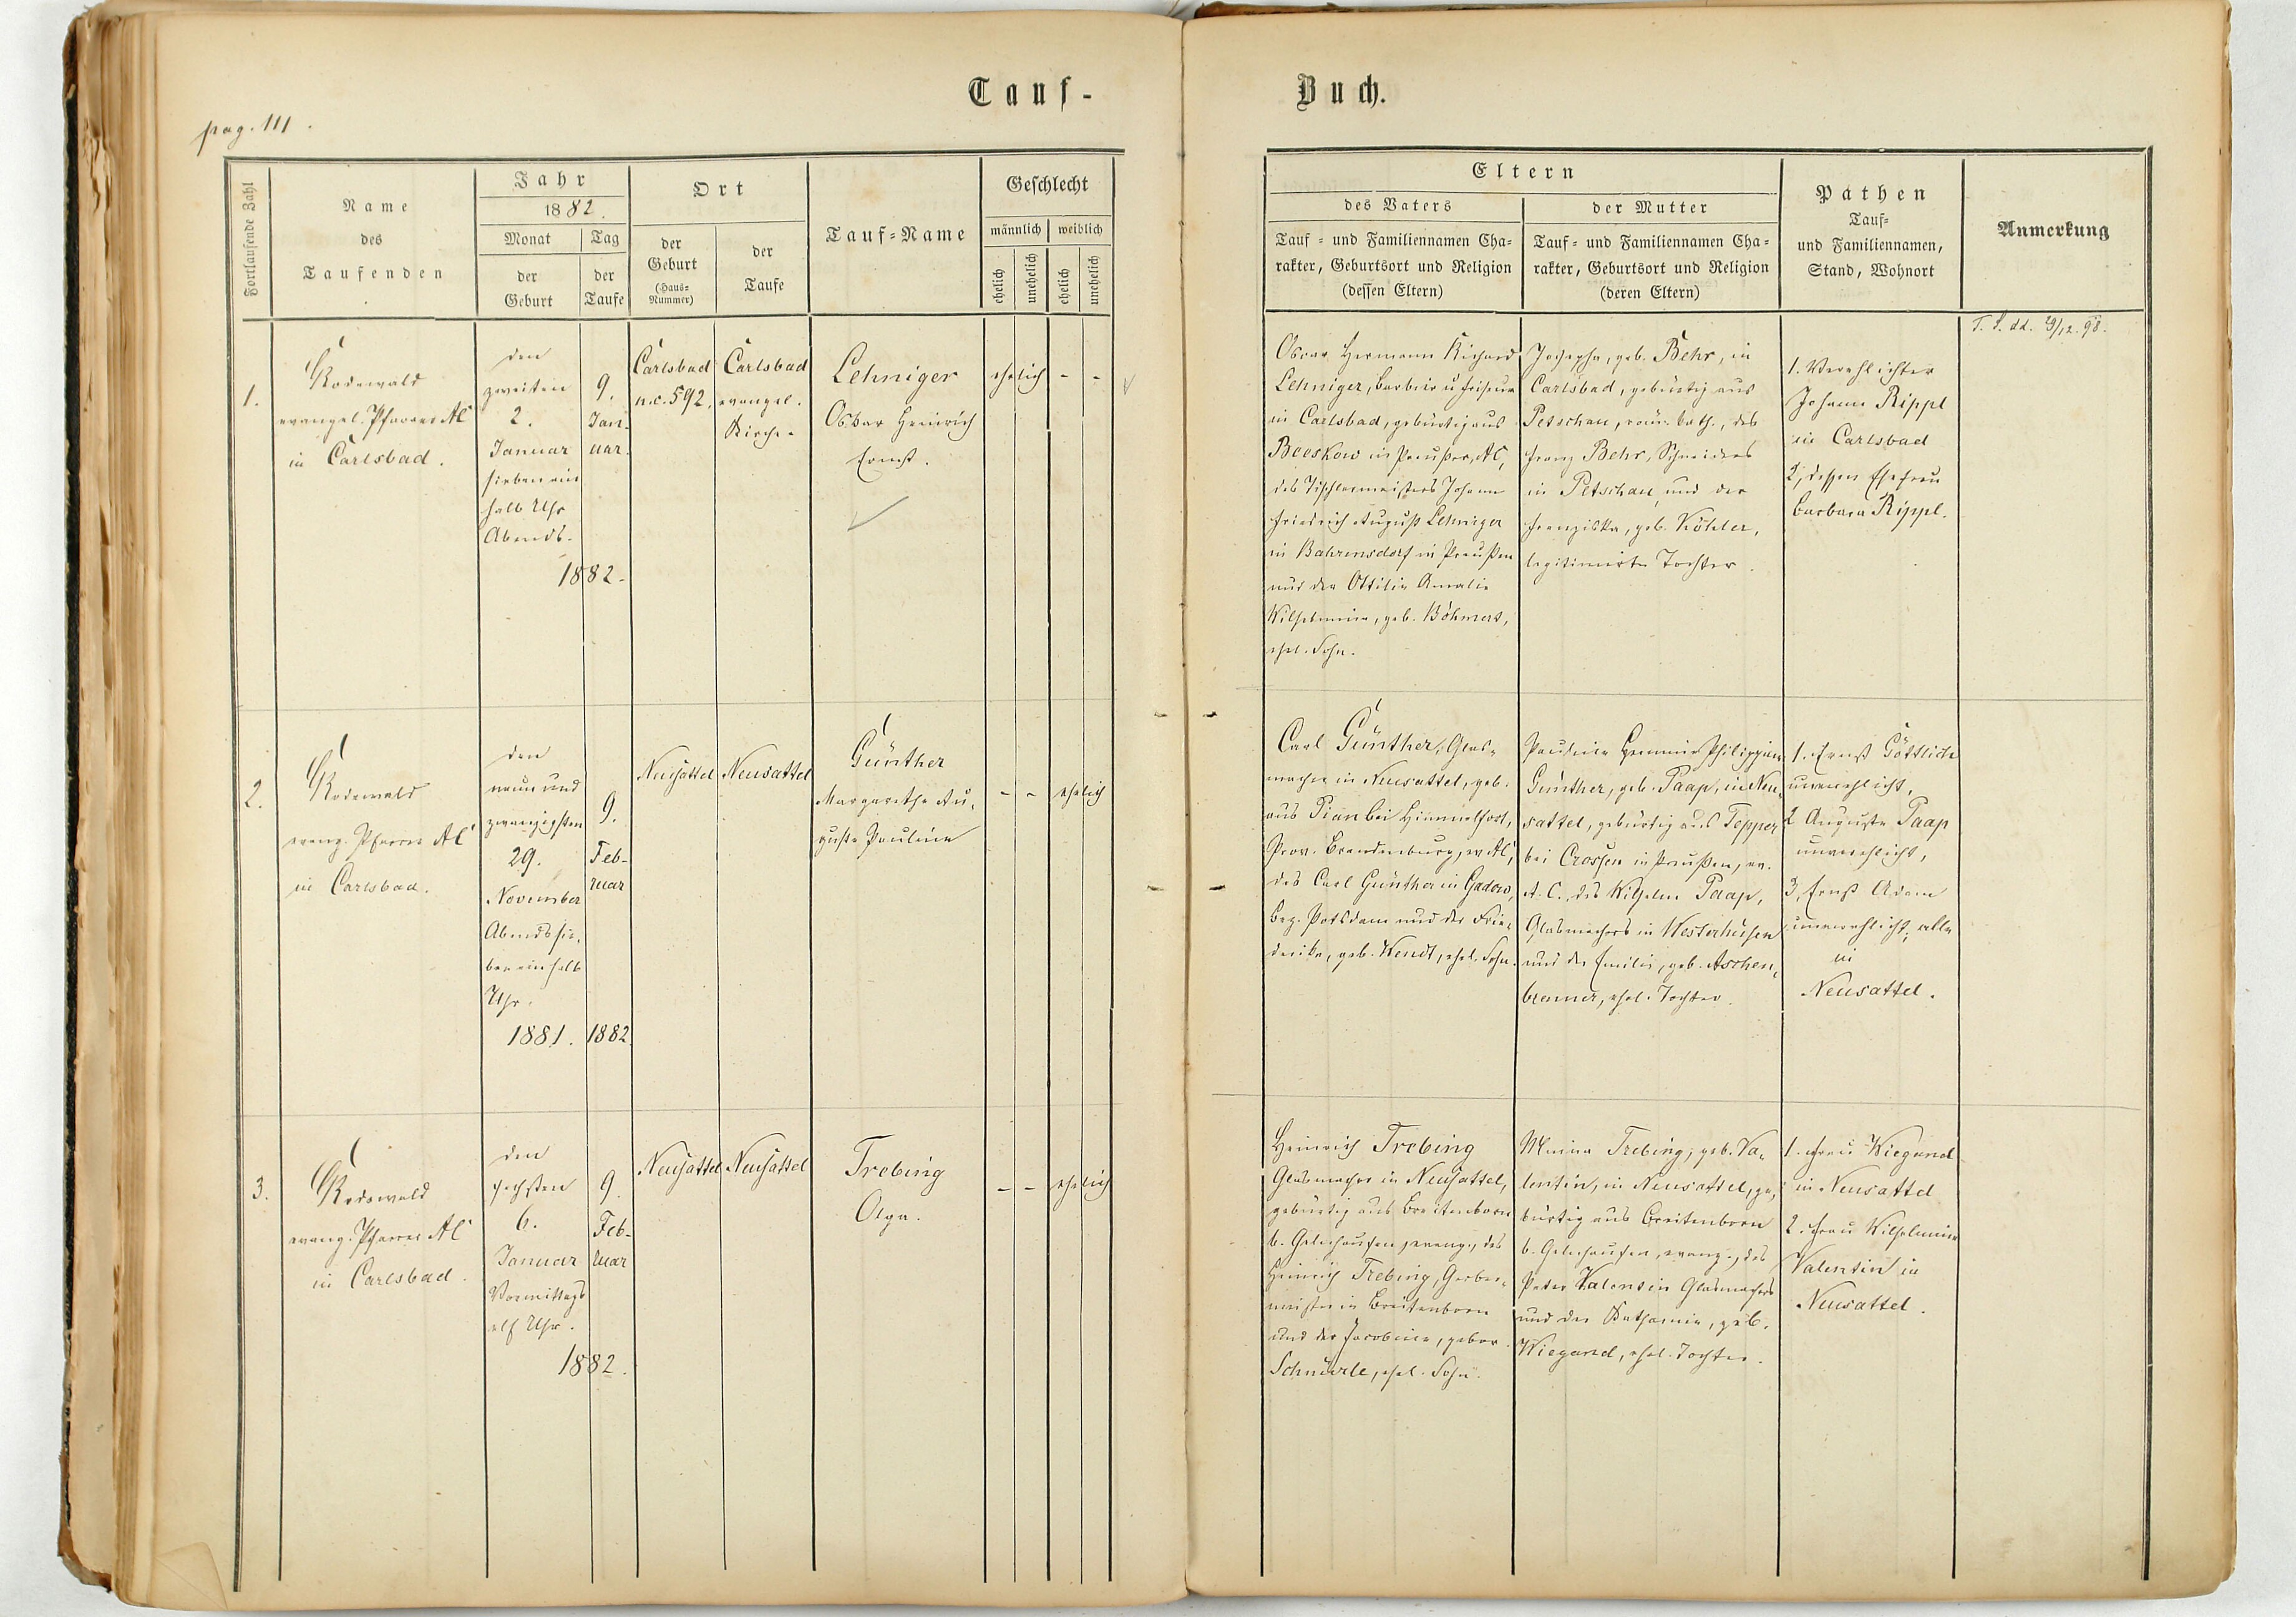 Tauf-
Buch.
pag. 111.
Fortlaufende Zahl
Name
des
Taufenden
Jahr
1882.
Monat
der
Geburt
Tag
der
Taufe
Ort
der
Geburt
(Haus-
Nummer)
der
Taufe
Tauf-Name
Geschlecht
männlich
weiblich
ehelich
unehelich
ehelich
unehelich
Eltern
des Vaters
Tauf- und Familiennamen Cha-
rakter, Geburtsort und Religion
(dessen Eltern)
der Mutter
Tauf- und Familiennamen Cha-
rakter, Geburtsort und Religion
(deren Eltern)
Pathen
Tauf-
und Familiennamen,
Stand, Wohnort
Anmerkung
1.
Rodewald
evangel. Pfarrer AC
in Carlsbad.
den
zweiten
2.
Januar
sieben ein
halb Uhr
Abends.
1882.
9.
Jan-
uar.
Carlsbad
n.c. 592.
Carlsbad
evangel.
Kirche.
Lehniger
Oskar Heinrich
Ernst.
ehelich - -
Oscar Hermann Richard
Lehniger, Barbier u Friseur
in Carlsbad, gebürtig aus
Beeskow in Preußen, AC,
des Tischlermeisters Johann
Friedrich August Lehniger
in Bahrensdorf in Preußen
und der Ottilie Amalie
Wilhelmine, geb. Böhmert,
ehel. Sohn.
Josepha, geb. Behr, in
Carlsbad, gebürtig aus
Petschau, röm. kath., des
Franz Behr, Schneiders
in Petschau und der
Franziska, geb. Köhler,
legitimirte Tochter.
1. Verehlichter
Johann Rippl
in Carlsbad
2, dessen Ehefrau
Barbara Rippl.
T. S. dd. 19/12. 98.
2.
Rodewald
evang. Pfarrer AC
in Carlsbad.
den
neun und
zwanzigsten
29.
November
Abends sie-
ben einhalb
Uhr.
1881.
9.
Feb-
ruar
1882.
Neusattel
Neusattel
Günther
Margarethe Au-
guste Pauline
- - ehelich
Carl Günther, Glas-
macher in Neusattel, geb.
aus Pian bei Himmelfort,
Prov. Brandenburg, ev AC,
des Carl Günther in Gadow,
Bez. Potsdam und der Frie-
derike, geb. Wendt, ehel. Sohn.
Pauline Hermine Philippine
Günther, geb. Paap, in Neu-
sattel, gebürtig aus Tepper
bei Crossen in Preußen, ev.
A. C., des Wilhelm Paap,
Glasmachers in Westerhüsen
und der Emilie, geb. Aschen-
brenner, ehel. Tochter.
1. Ernst Göttlich
unverehlicht,
2 Auguste Paap
unverehlicht,
3, Ernst Adam
unverehlicht, alle
in
Neusattel.
3.
Rodewald
evang. Pfarrer AC
in Carlsbad.
den
sechsten
6.
Januar
Vormittags
elf Uhr.
1882.
9.
Feb-
ruar
Neusattel
Neusattel
Trebing
Olga.
- - ehelich
Heinrich Trebing
Glasmacher in Neusattel,
gebürtig aus Breitenborn
b. Gelnhausen, evang., des
Heinrich Trebing, Gerber-
meister in Breitenborn
und der Jacobine, gebor.
Schnürle, ehel. Sohn.
Maria Trebing, geb. Va-
lentin, in Neusattel, ge-
bürtig aus Breitenborn
b. Gelnhausen, evang., des
Peter Valentin Glasmachers
und der Katharine, geb.
Wiegand, ehel. Tochter.
1. Frau Wiegand
in Neusattel
2. Frau Wilhelmine
Valentin in
Neusattel.